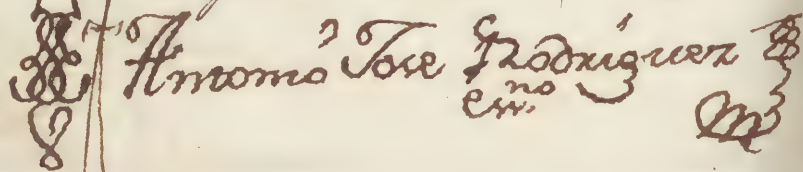 Antonio Jose Rodriguez